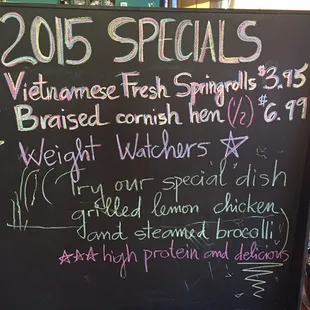 2015 SPECIALS
Vietnamese Fresh Springrolls $3.95
Braised cornish hen (1/2) $6.99
Weight Watchers ☆
Try our special dish
grilled lemon chicken
and steamed brocolli
☆☆☆ high protein and delicious